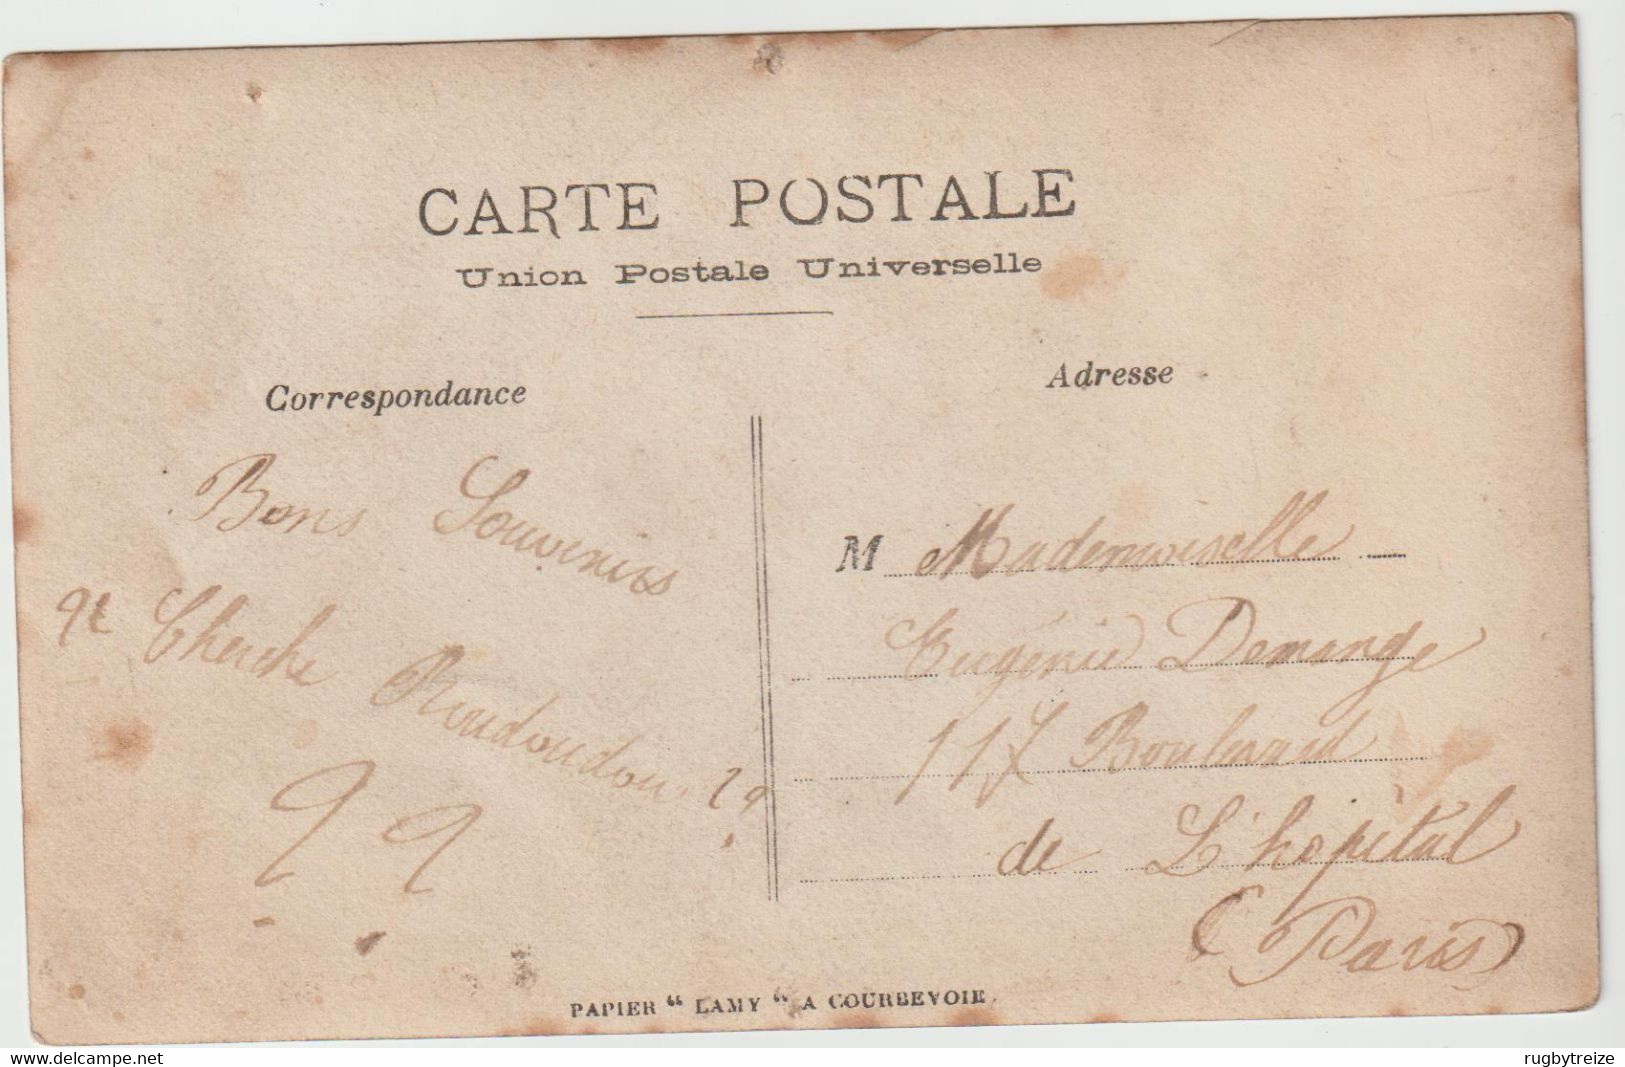 CARTE POSTALE
Union Postale Universelle
Correspondance
Bons Souvenirs
Cherche Roudoudou ? ?
? ?
Adresse
M Mademoiselle
Eugénie Demange
117 Boulevard
de L'hôpital
(Paris)
PAPIER “ LAMY “ A COURBEVOIE
www.delcampe.net
rugbytreize